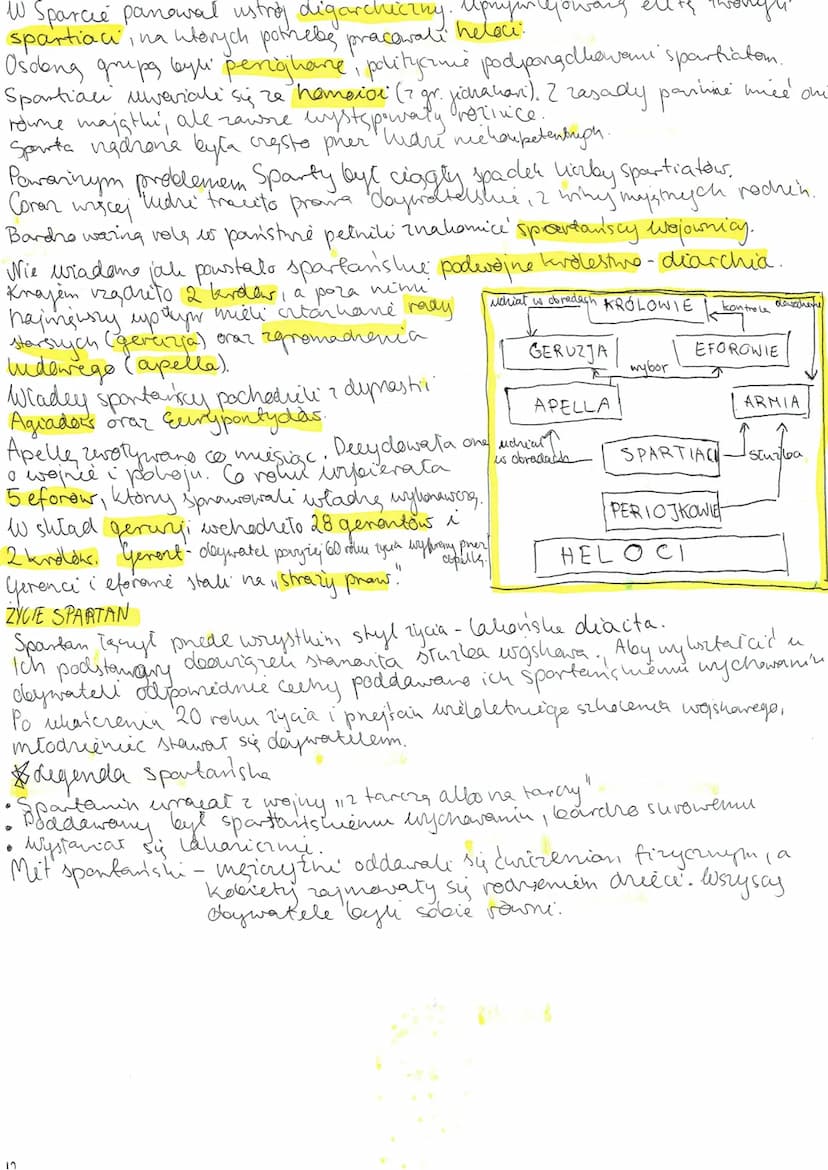 W Sparcie panował ustrój oligarchiczny. Uprzywilejowaną elitę tworzyli
spartiaci, na których potrzeby pracowali heloci.
Osobną grupą byli periojkowie, politycznie podporządkowani spartiatom.
Spartiaci uważali się za homoioi (z gr. jednakowi). Z zasady powinni mieć oni
równe majątki, ale zawsze występowały różnice.
Sparta rządzona była często przez ludzi niekompetentnych.
Poważnym problemem Sparty był ciągły spadek liczby spartiatów.
Coraz więcej ludzi traciło prawa obywatelskie, z winy majętnych rodzin.
Bardzo ważną rolę w państwie pełnili znakomici spartańscy wojownicy.
Nie wiadomo jak powstało spartańskie podwójne królestwo - diarchia.
Krajem rządziło 2 królów, a poza nimi
największy wpływ mieli członkowie rady
starszych (geruzja) oraz zgromadzenia
ludowego (apella).
Władcy spartańscy pochodzili z dynastii
Agiadów oraz Eurypontydów.
Apellę zwoływano co miesiąc. Decydowała ona
o wojnie i pokoju. Co roku wybierała
5 eforów, którzy sprawowali władzę wykonawczą.
W skład geruzji wchodziło 28 gerontów i
2 królów. Geront - obywatel powyżej 60 roku życia wybrany przez
apellę.
Geronci i eforowie stali na "straży praw."
udział w obradach KRÓLOWIE kontrola dowodzenie
GERUZJA EFOROWIE
wybór
APELLA ARMIA
udział
w obradach SPARTIACI służba
PERIOJKOWIE
HELOCI
ŻYCIE SPARTAN
Spartan łączył przede wszystkim styl życia - lakońska diaita.
Ich podstawowy obowiązek stanowiła służba wojskowa. Aby wykształcić u
obywateli odpowiednie cechy poddawano ich spartańskiemu wychowaniu
Po ukończeniu 20 roku życia i przejściu wieloletniego szkolenia wojskowego,
młodzieniec stawał się obywatelem.
Legenda spartańska
• Spartanin wracał z wojny "z tarczą albo na tarczy"
• Poddawany był spartańskiemu wychowaniu, bardzo surowemu
• Wysławiał się lakonicznie.
Mit spartański - mężczyźni oddawali się ćwiczeniom fizycznym, a
kobiety zajmowały się rodzeniem dzieci. Wszyscy
obywatele byli sobie równi.